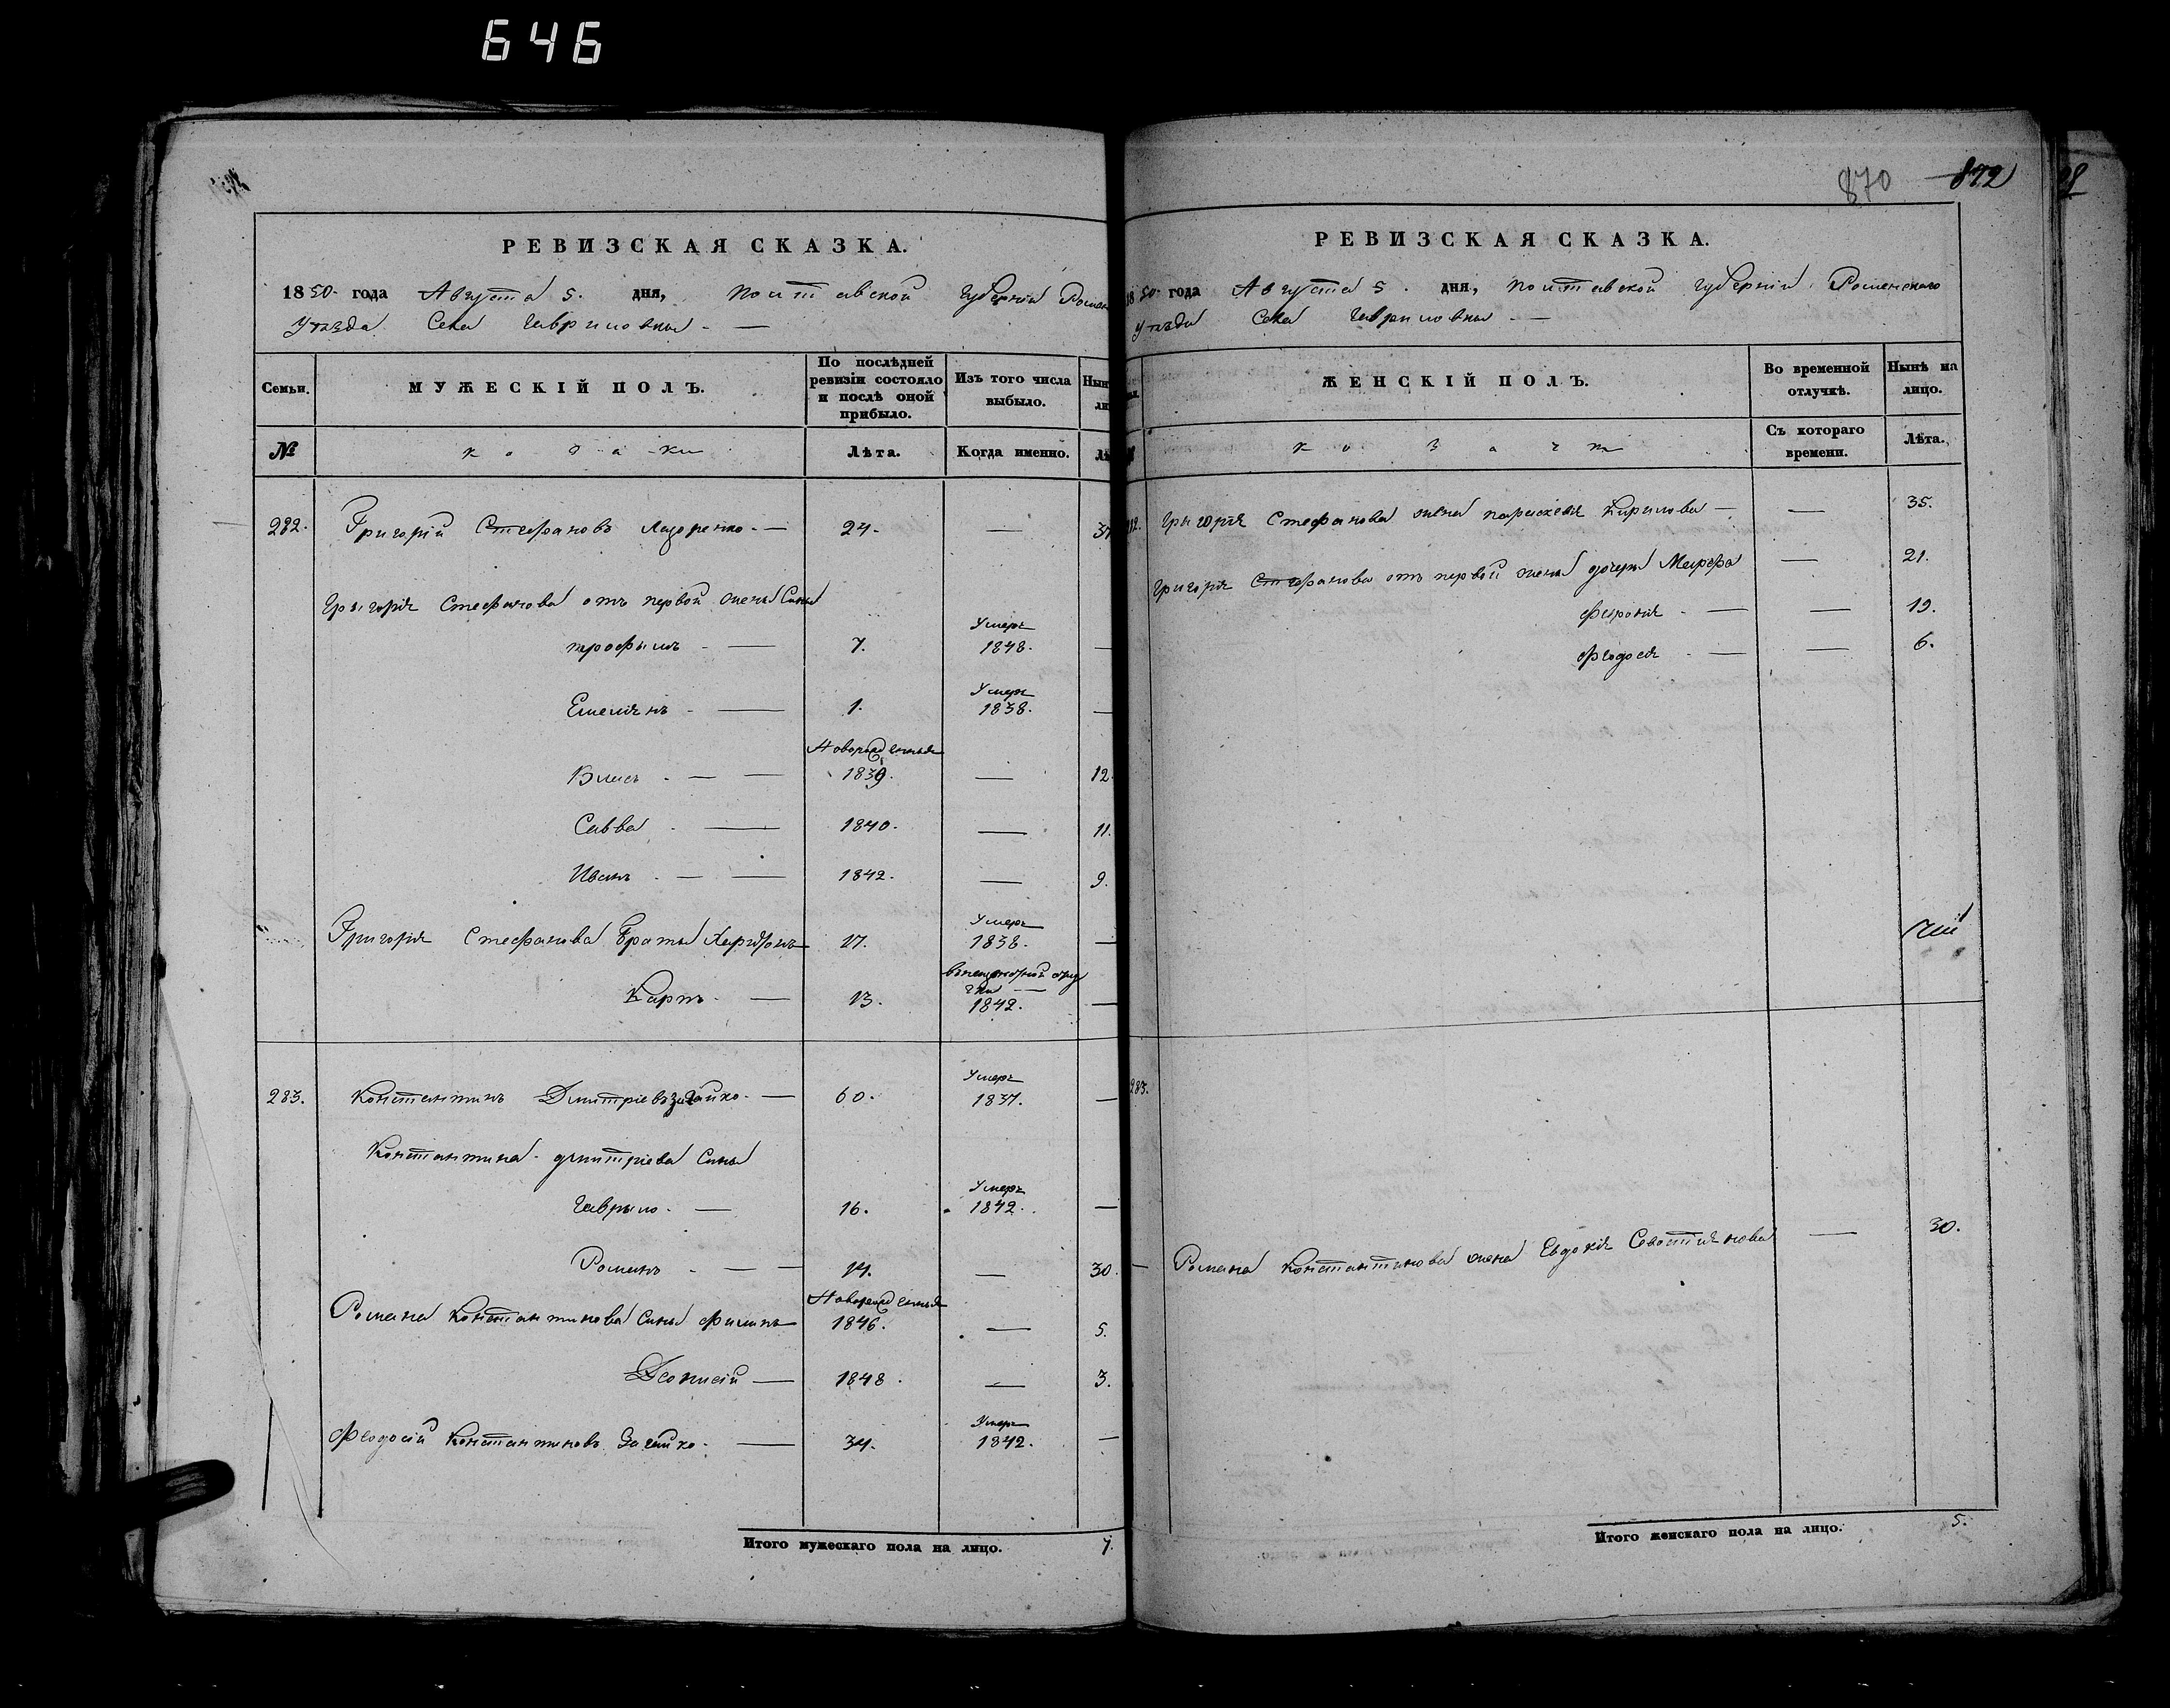 646
870 872
РЕВИЗСКАЯ СКАЗКА.
1850 года Августа 5. дня, Полтавской Губерніи Ромен
Уѣзда Села Гавриловки
Семьи. МУЖЕСКІЙ ПОЛЪ. По послѣдней ревизіи состояло и послѣ оной прибыло. Изъ того числа выбыло. Нын
№ козаки Лѣта. Когда именно. Лѣ
282. Григорій Стефановъ 24. — 37
Григорія Стефанова отъ первой жены Сыны
Трофымъ 7. Умеръ 1848. —
Емеліянъ 1. Умеръ 1838. —
Власъ Новорожденныя 1839. — 12.
Савва 1840. — 11.
Иванъ 1842. — 9.
Григорія Стефанова Браты Харитонъ 17. Умеръ 1838. —
Карпъ 13. 1842. —
283. Константинъ Дмитріевъ 60. Умеръ 1837. —
Константина Дмитріева Сыны
Гаврыло 16. Умеръ 1842. —
Романъ 14. — 30.
Романа Константинова Сыны Филипъ Новорожденныя 1846. — 5.
Деонисій 1848. — 3.
Феодосій Константиновъ 34. Умеръ 1842. —
Итого мужескаго пола на лицо. 7.
РЕВИЗСКАЯ СКАЗКА.
1850 года Августа 5. дня, Полтавской Губерніи Роменскаго
Уѣзда Села Гавриловки
ЖЕНСКІЙ ПОЛЪ. Во временной отлучкѣ. Нынѣ на лицо.
Съ котораго времени. Лѣта.
Григорія Стефанова жена Параскевія Кирилова — 35.
Григорія Стефанова отъ первой жены дочери Марфа — 21.
Февронія — 19.
Феодосія — 6.
283.
Романа Константинова жена Евдокія Севостіянова — 30.
Итого женскаго пола на лицо. 5.